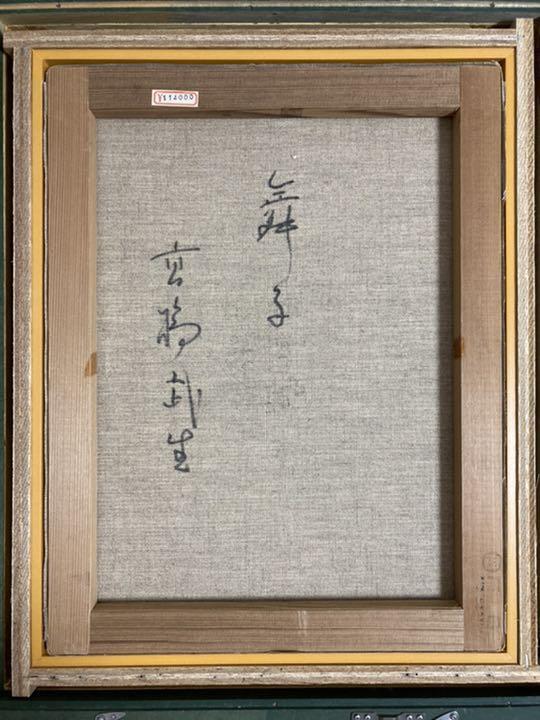 ¥114000
舞子
高橋武生